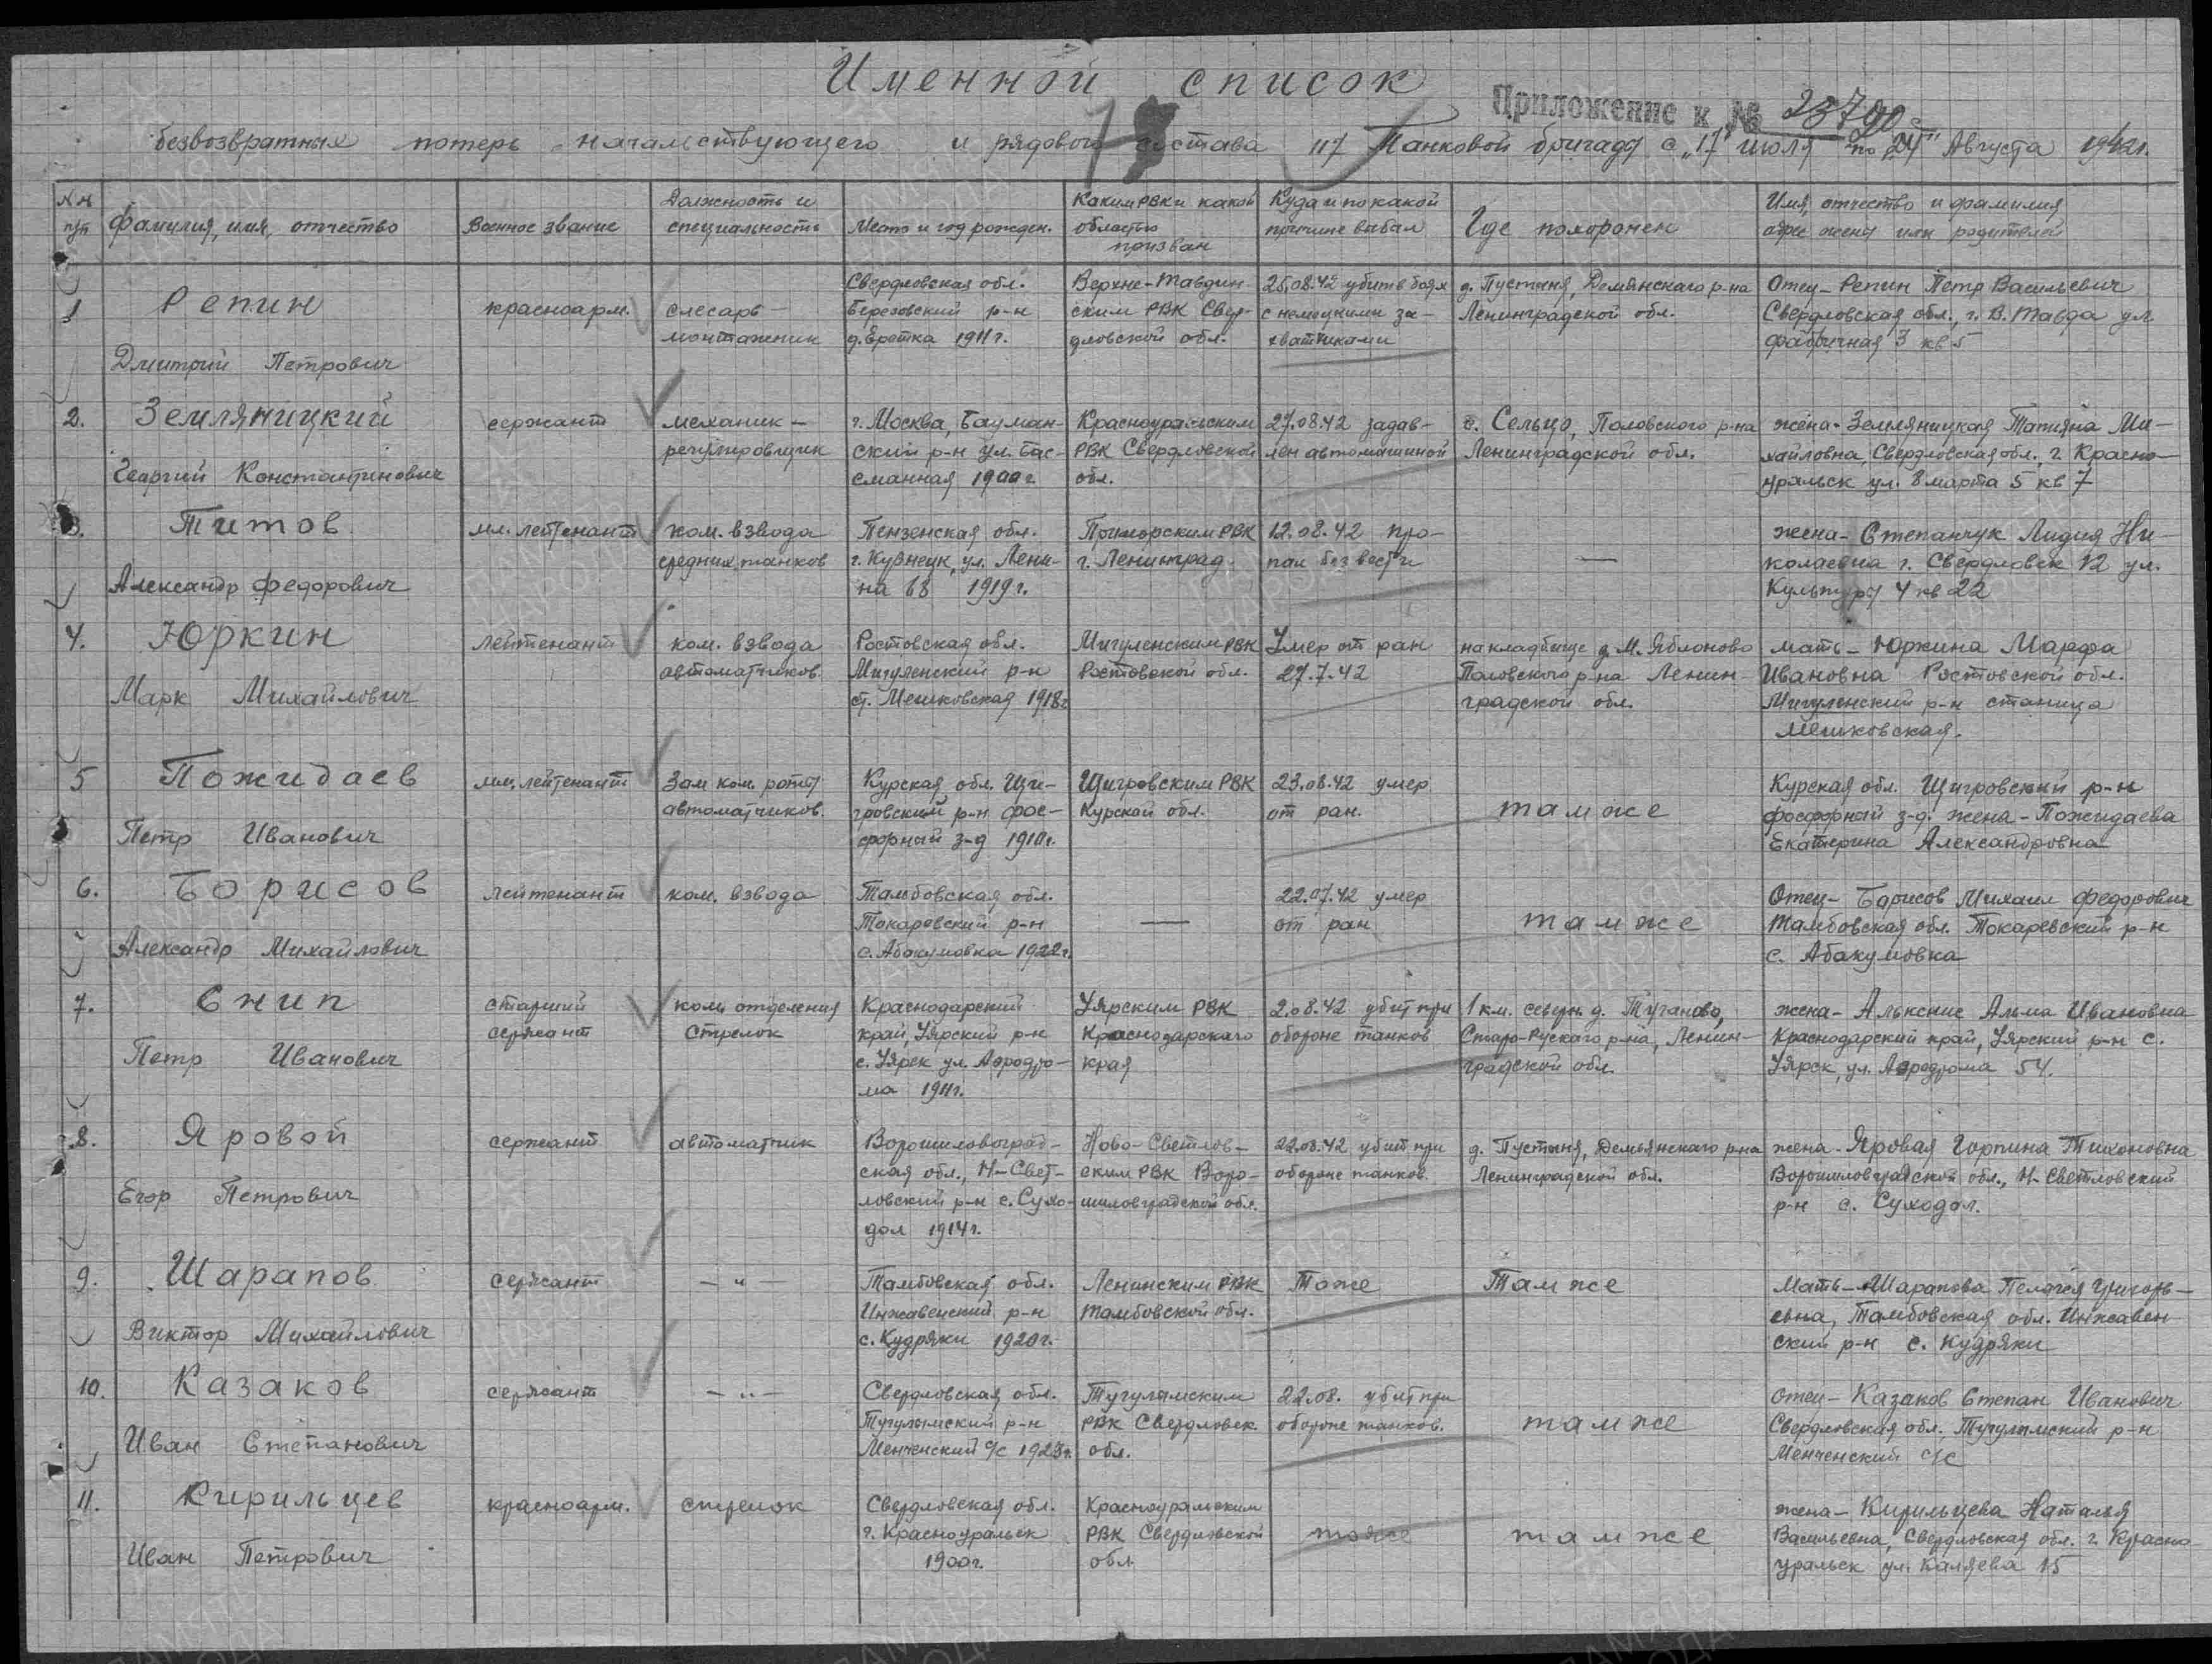 Именной список
Приложение к №
безвозвратных потерь начальствующего и рядового состава 117 Танковой бригады с "17" июля по "24" Августа 1942г.
№№ п/п
Фамилия, имя, отчество
Военное звание
Должность и специальность
Место и год рожден.
Каким РВК и какой областью призван
Куда и по какой причине выбыл
Где похоронен
Имя, отчество и фамилия
жены или родителей
1
Репин
Дмитрий Петрович
красноарм.
слесарь-
монтажник
Свердловская обл.
Березовский р-н
1911г.
Верхне-Тавдин-
ским РВК Свер-
дловской обл.
25.08.42 убит в боях
с немецкими за-
хватчиками
д. Пустыня, Демянского р-на
Ленинградской обл.
Отец - Репин Петр Васильевич
Свердловская обл., г. В. Тавда ул.
Фабричная 3 кв 5
2.
Земляницкий
Георгий Константинович
сержант
механик-
регулировщик
г. Москва, Бауман-
ский р-н ул. Бас-
манная 1900г.
Красноуральским
РВК Свердловской
обл.
27.08.42 задав-
лен автомашиной
с. Сельцо, Половского р-на
Ленинградской обл.
жена - Земляницкая Татьяна Ми-
хайловна, Свердловская обл., г. Красно-
уральск ул. 8 марта 5 кв 7
3.
Титов
Александр Федорович
мл. лейтенант
ком. взвода
средних танков
Пензенская обл.
г. Кузнецк, ул. Лени-
на 68 1919г.
Приморским РВК
г. Ленинград
12.08.42 про-
пал без вести
—
жена - Степанчук Лидия Ни-
колаевна г. Свердловск 12 ул.
Культуры 4 кв 22
4.
Юркин
Марк Михайлович
лейтенант
ком. взвода
автоматчиков.
Ростовская обл.
Мигуленский р-н
ст. Мешковская 1918г.
Мигуленским РВК
Ростовской обл.
Умер от ран
27.7.42
на кладбище д. М. Яблоново
Половского р-на Ленин-
градской обл.
мать - Юркина Марфа
Ивановна Ростовской обл.
Мигуленский р-н станица
Мешковская.
5
Пожидаев
Петр Иванович
мл. лейтенант
Зам ком. роты
автоматчиков.
Курская обл. Щи-
гровский р-н фос-
форный з-д 1910г.
Щигровским РВК
Курской обл.
23.08.42 умер
от ран.
там же
Курская обл. Щигровский р-н
фосфорный з-д. жена - Пожидаева
Екатерина Александровна
6.
Борисов
Александр Михайлович
лейтенант
ком. взвода
Тамбовская обл.
Токаревский р-н
с. Абакумовка 1922г.
—
22.07.42 умер
от ран
там же
Отец - Борисов Михаил Федорович
Тамбовская обл. Токаревский р-н
с. Абакумовка
7.
Снип
Петр Иванович
старший
сержант
ком. отделения
стрелок
Краснодарский
край, Уярский р-н
с. Уярск ул. Аэродро-
ма 1911г.
Уярским РВК
Краснодарского
края
2.08.42 убит при
обороне танков
1 км. северн. д. Туганово,
Старо-Руского р-на, Ленин-
градской обл.
жена - Алькснис Альма Ивановна
Краснодарский край, Уярский р-н с.
Уярск, ул. Аэродрома 54.
8.
Яровой
Егор Петрович
сержант
автоматчик
Ворошиловоград-
ская обл., Н-Свет-
ловский р-н с. Сухо-
дол 1914г.
Ново-Светлов-
ским РВК Воро-
шиловградской обл.
22.08.42 убит при
обороне танков.
д. Пустыня, Демьянского р-на
Ленинградской обл.
жена - Яровая Горпина Тихоновна
Ворошиловградской обл., Н-Светловский
р-н с. Суходол.
9.
Шарапов
Виктор Михайлович
сержант
— " —
Тамбовская обл.
Инжавенский р-н
с. Кудряки 1920г.
Ленинским РВК
Тамбовской обл.
Тоже
Там же
Мать - Шарапова Пелагея Григорь-
евна, Тамбовская обл. Инжавен-
ский р-н с. Кудряки
10.
Казаков
Иван Степанович
сержант
— " —
Свердловская обл.
Тугулымский р-н
Менченский с/с 1923г.
Тугулымским
РВК Свердловск.
обл.
22.08. убит при
обороне танков.
там же
отец - Казаков Степан Иванович
Свердловская обл. Тугулымский р-н
Менченский с/с
11.
Кирильцев
Иван Петрович
красноарм.
стрелок
Свердловская обл.
г. Красноуральск
1900г.
Красноуральским
РВК Свердловской
обл.
тоже
там же
жена - Кирильцева Наталья
Васильевна, Свердловская обл. г. Красно-
уральск ул. Каляева 15